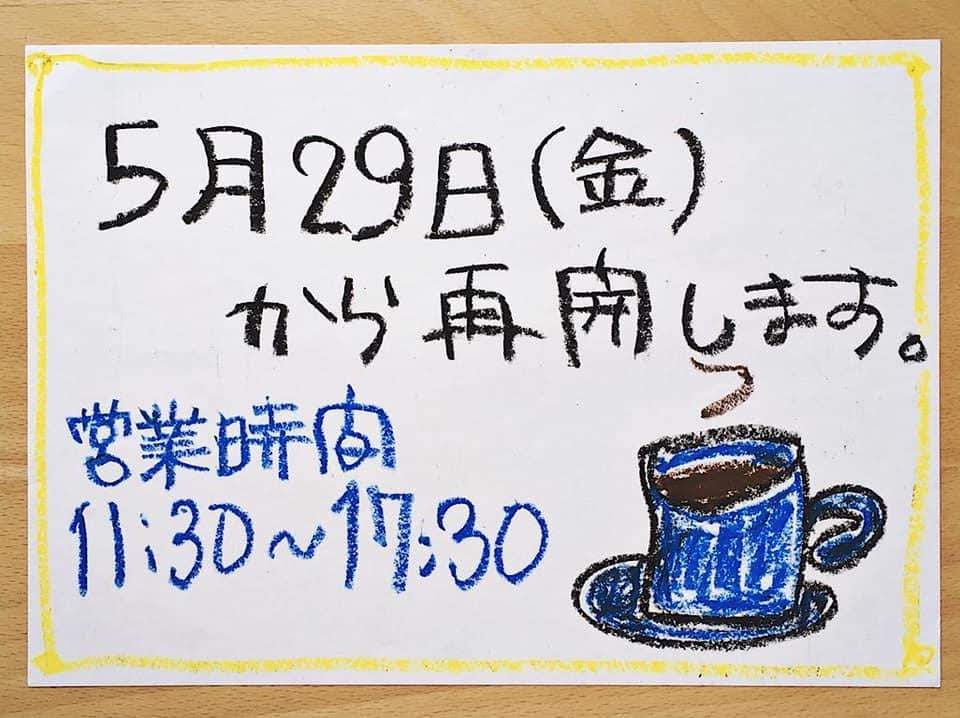 5月29日(金)
から再開します。
営業時間
11:30～17:30